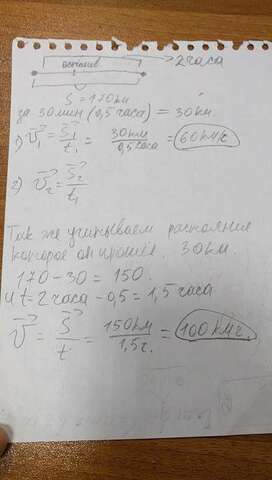 2 часа
S = 170 км
за 30 мин (0,5 часа) = 30 км
1) V₁ = S₁/t₁ = 30 км/0,5 часа = 60 км/ч
2) V₂ = S₂/t₁
Так же учитываем расстояние
которое он прошёл. 30 км.
170 - 30 = 150.
и t = 2 часа - 0,5 = 1,5 часа
V = S/t = 150 км/1,5 ч. = 100 км/ч.